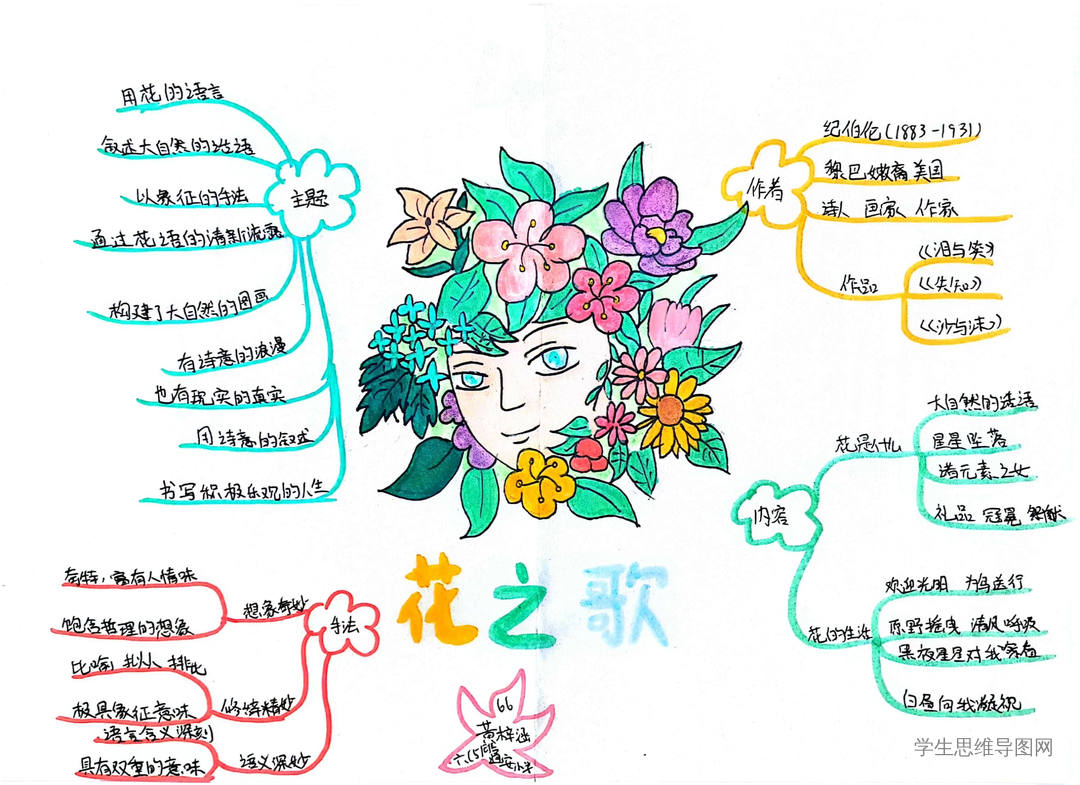 用花的语言
叙述大自然的话语
以象征的手法
通过花语的清新流露
构建了大自然的图画
有诗意的浪漫
也有现实的真实
用诗意的叙述
书写积极乐观的人生
主题
纪伯伦(1883-1931)
黎巴嫩裔美国
诗人 画家、作家
作者
作品
《泪与笑》
《先知》
《沙与沫》
大自然的话语
花是什么
星星坠落
诸元素之女
礼品 冠冕 祭献
内容
欢迎光明 为鸟送行
花的生活
原野摇曳 清风呼吸
黑夜星星对我眨着
白昼向我凝视
奇特,富有人情味
想象奇妙
饱含哲理的想象
手法
比喻 拟人 排比
修辞精妙
极具象征意味
语言含义深刻
语义深妙
具有双重的意味
花之歌
66
黄梓涵
六(5)
通安小学
学生思维导图网